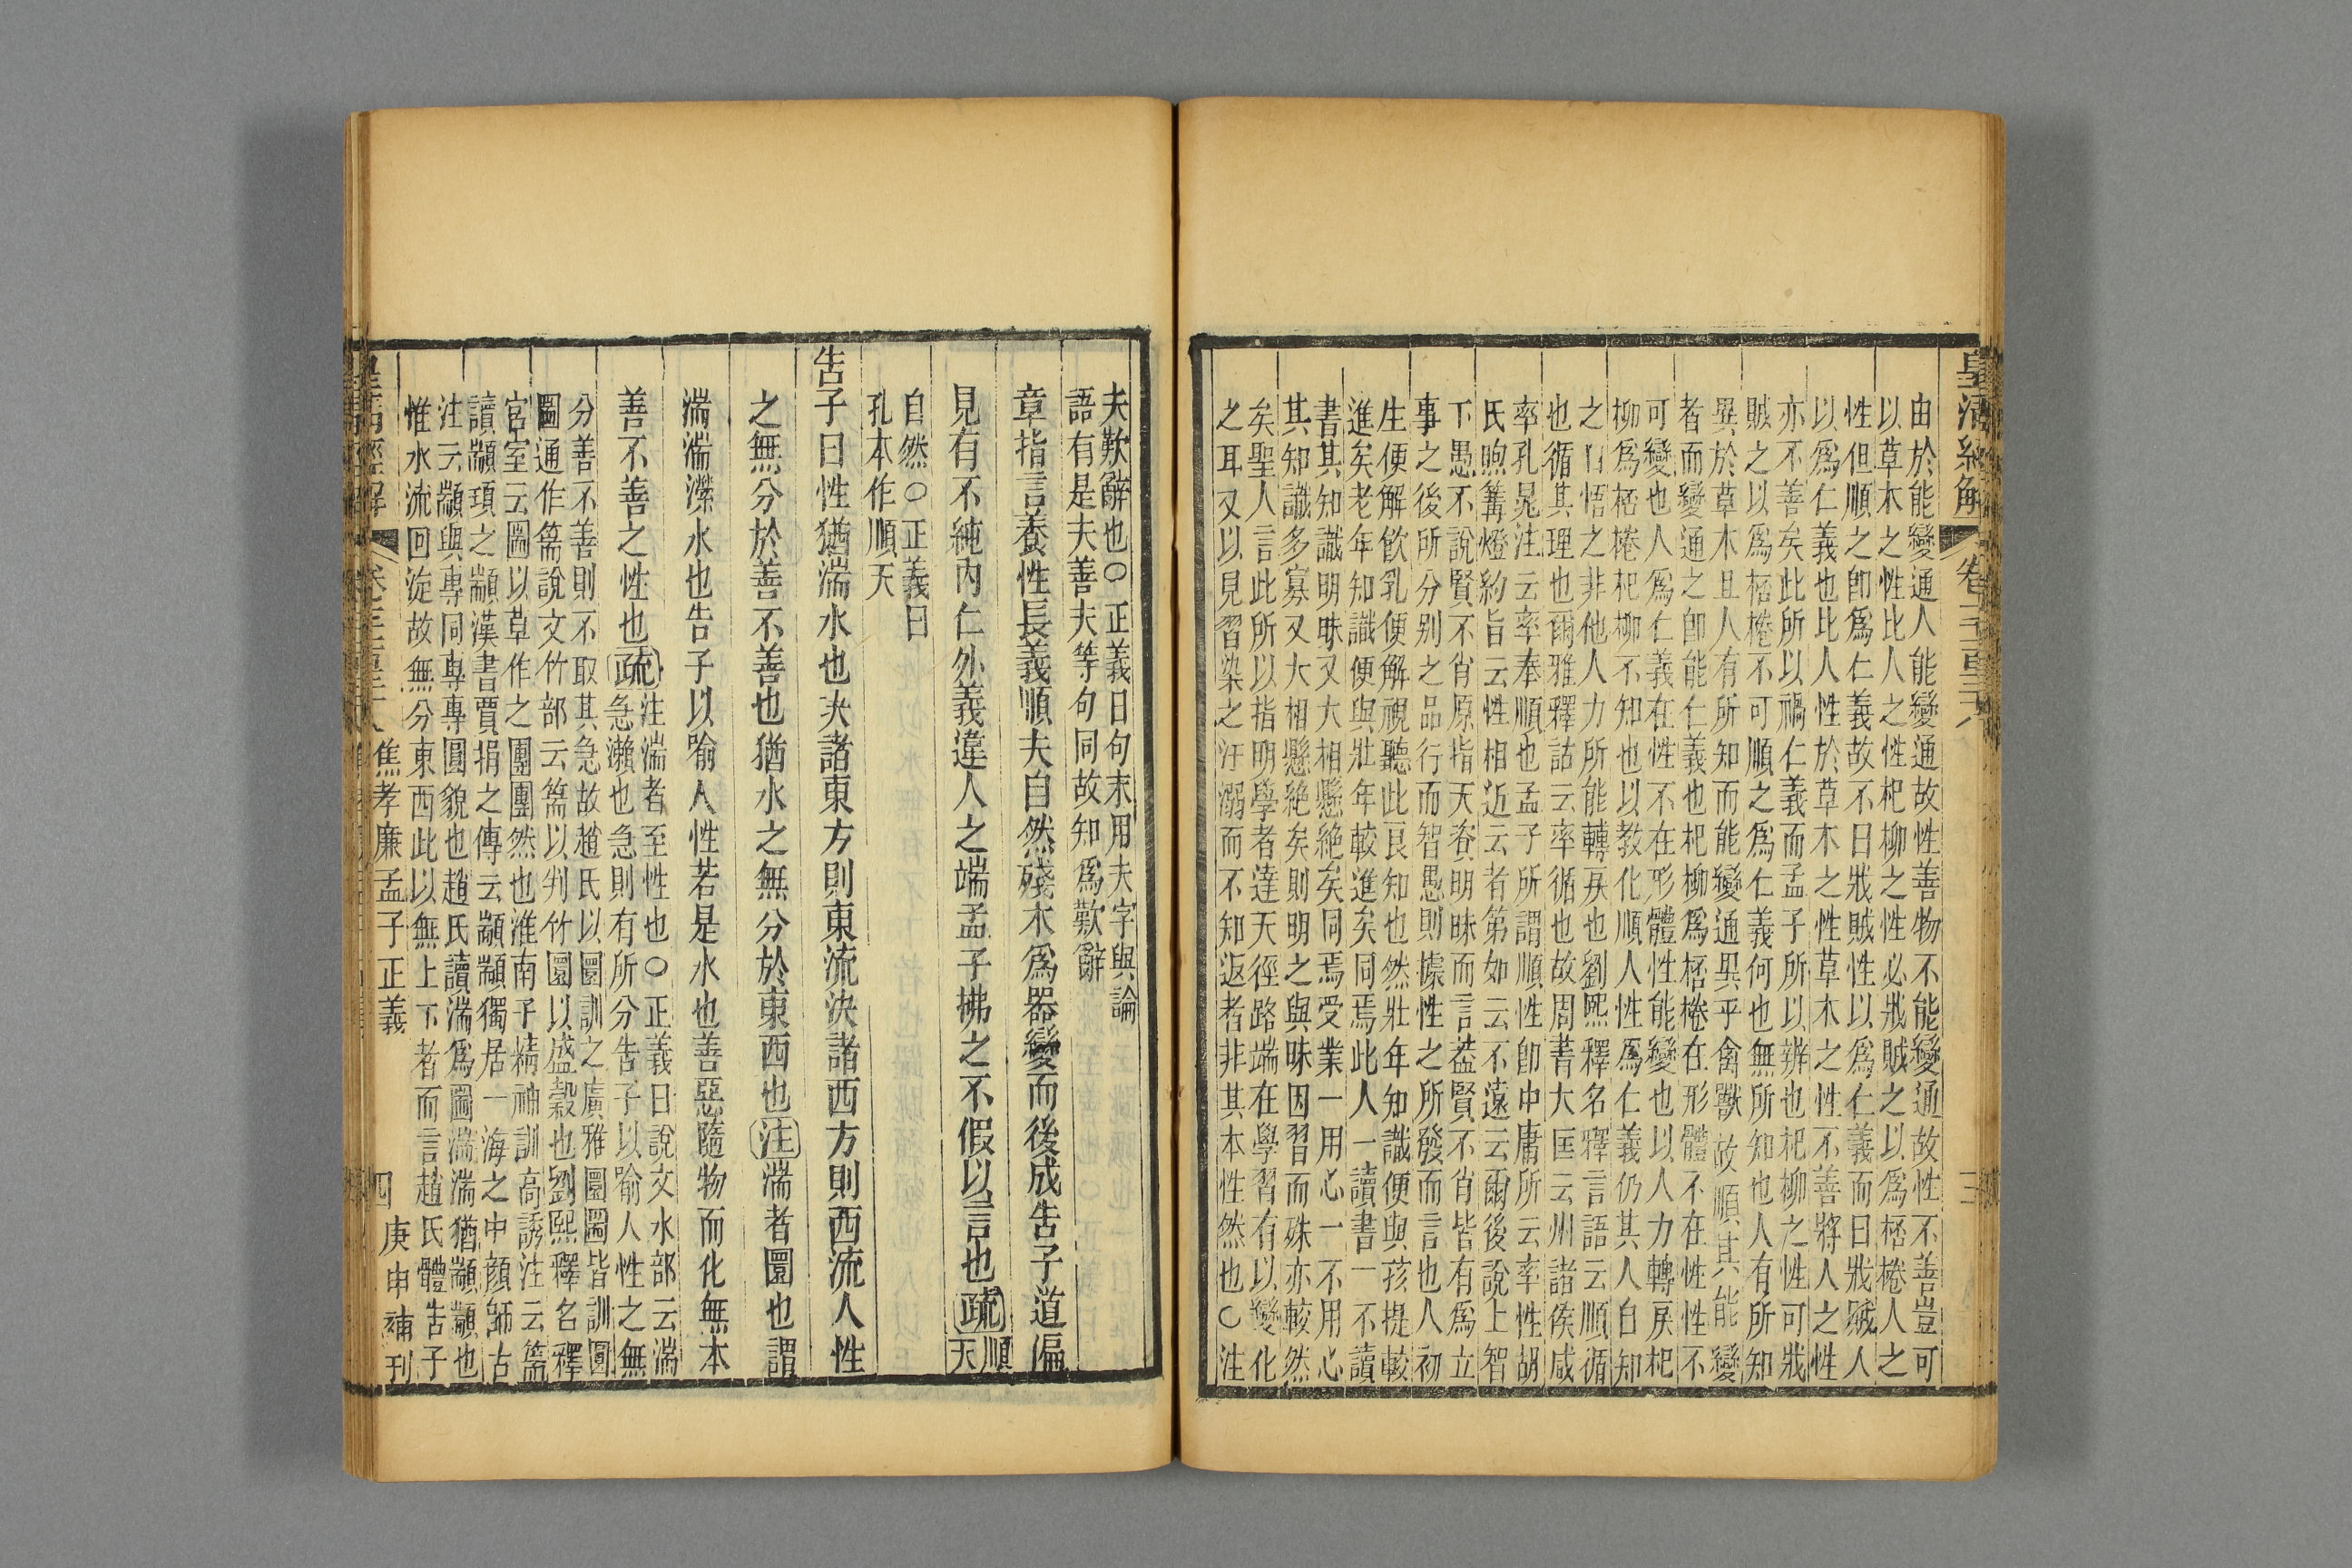 皇清經解 卷千一百三十八 三
由於能變通人能變通故性善物不能變通故性不善豈可
以草木之性比人之性杞柳之性必戕賊之以爲桮棬人之
性但順之卽爲仁義故不曰戕賊性以爲仁義而曰戕賊人
以爲仁義也比人性於草木之性草木之性不善將人之性
亦不善矣此所以禍仁義而孟子所以辨也杞柳之性可戕
賊之以爲桮棬不可順之爲仁義何也無所知也人有所知
異於草木且人有所知而能變通異乎禽獸故順其能變
者而變通之卽能仁義也杞柳爲桮棬在形體不在性性不
可變也人爲仁義在性不在形體性能變也以人力轉戾杞
柳爲桮棬杞柳不知也以教化順人性爲仁義仍其人自知
之自悟之非他人力所能轉戾也劉熙釋名釋言語云順循
也循其理也爾雅釋詁云率循也故周書大匡云州諸侯咸
率孔晁注云率奉順也孟子所謂順性卽中庸所云率性胡
氏煦篝燈約旨云性相近云者第如云不遠云爾後說上智
下愚不說賢不肖原指天資明昧而言葢賢不肖皆有爲立
事之後所分別之品行而智愚則據性之所發而言也人初
生便解飲乳便解視聽此良知也然壯年知識便與孩提較
進矣老年知識便與壯年較進矣同焉此人一讀書一不讀
書其知識明昧又大相懸絕矣同焉受業一用心一不用心
其知識多寡又大相懸絕矣則明之與昧因習而殊亦較然
矣聖人言此所以指明學者達天徑路端在學習有以變化
之耳又以見習染之汙溺而不知返者非其本性然也○注
夫歎辭也○正義曰句末用夫字與論
語有是夫善夫等句同故知爲歎辭
章指言養性長義順夫自然殘木爲器變而後成告子道偏
見有不純內仁外義違人之端孟子拂之不假以言也疏順天
自然○正義曰
孔本作順天
告子曰性猶湍水也決諸東方則東流決諸西方則西流人性
之無分於善不善也猶水之無分於東西也注湍者圜也謂
湍湍瀠水也告子以喻人性若是水也善惡隨物而化無本
善不善之性也疏注湍者至性也○正義曰說文水部云湍
急瀨也急則有所分告子以喻人性之無
分善不善則不取其急故趙氏以圜訓之廣雅圜圖皆訓圓
圖通作篅說文竹部云篅以判竹圜以盛穀也劉熙釋名釋
宮室云圖以草作之團團然也淮南子精神訓高誘注云篅
讀顓頊之顓漢書賈捐之傳云顓顓獨居一海之中顏師古
注云顓與專同專專圓貌也趙氏讀湍爲圖湍湍猶顓顓也
惟水流回漩故無分東西此以無上下者而言趙氏體告子
皇清經解 卷千一百三十八 焦孝廉孟子正義 四 庚申補刊